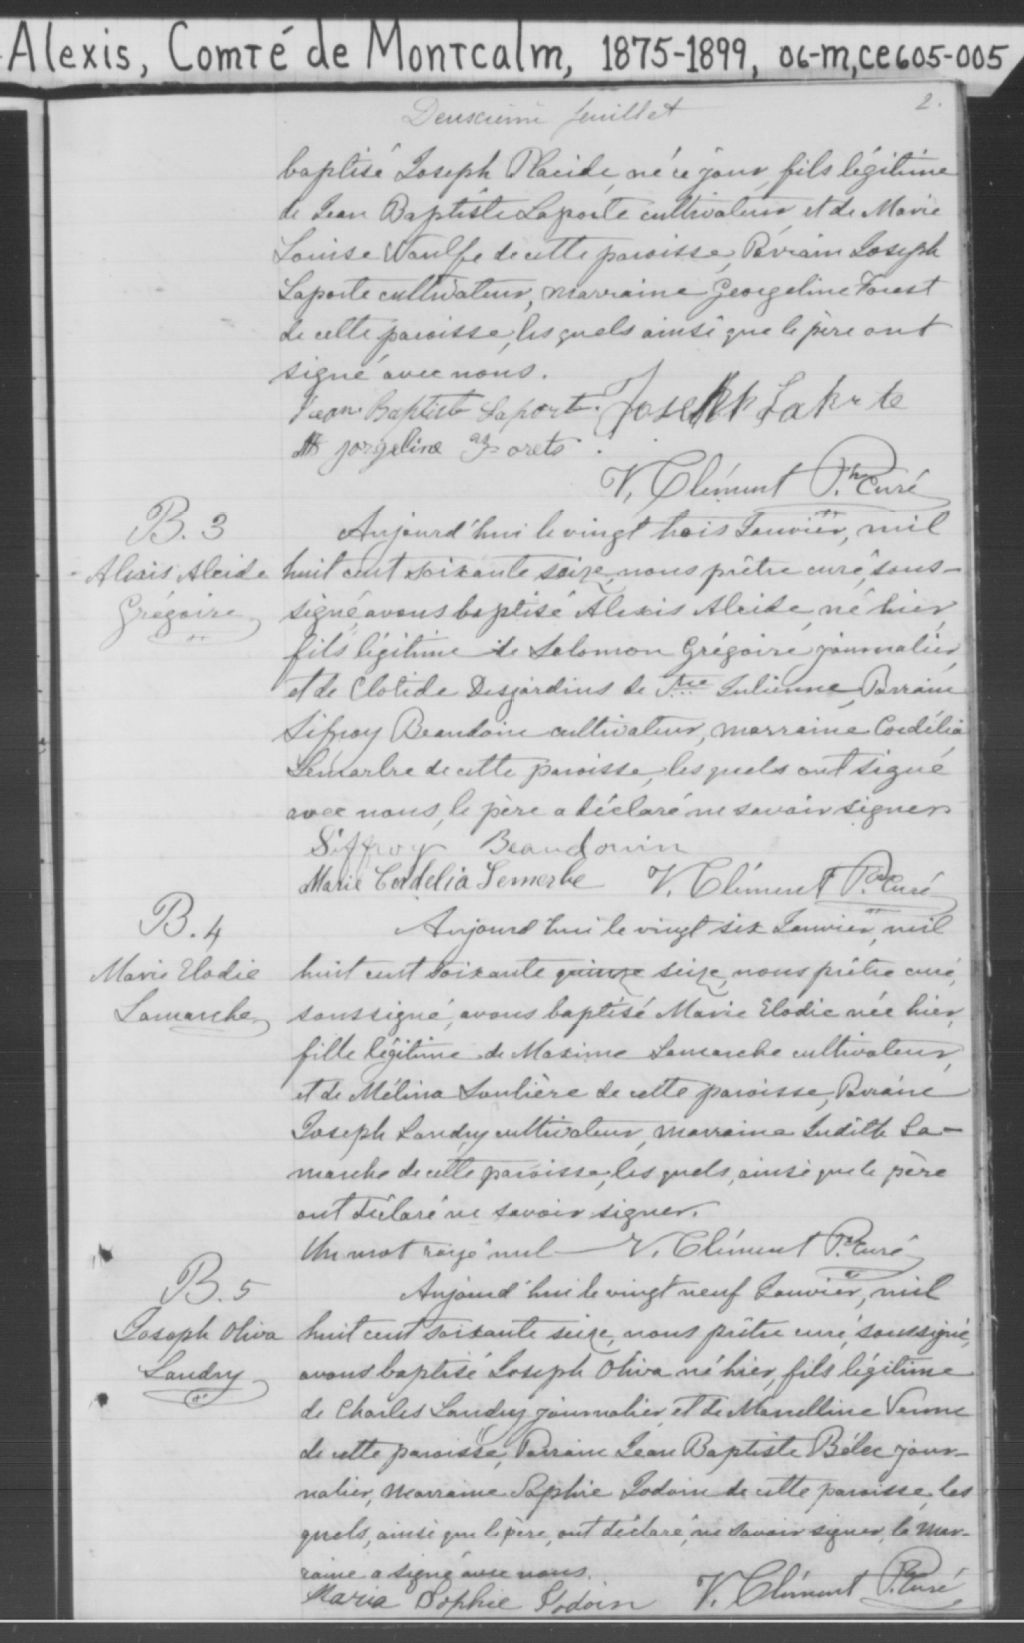 Alexis, Comté de Montcalm, 1875-1899, 06-M,CE605-005
2.
Deuxième feuillet
baptisé Joseph Placide, né ce jour, fils légitime
de Jean Baptiste Laporte cultivateur et de Marie
Louise Woulfe de cette paroisse, Parrain Joseph
Laporte cultivateur, marraine Georgeline Forest
de cette paroisse, lesquels ainsi que le père ont
signé avec nous.
Jean Baptiste Laporte. Joseph Laporte
M jorgeline Forets.
V. Clément Ptre Curé
B. 3
Alexis Alcide
Grégoire
Aujourd'hui le vingt trois Janvier, mil
huit cent soixante seize, nous prêtre curé, sous-
signé, avons baptisé Alexis Alcide, né hier,
fils légitime de Solomon Grégoire, journalier,
et de Clotide Desjardins de Ste Julienne, Parrain
Sifroy Beaudoin cultivateur, marraine Cordélia
Lemarbre de cette paroisse, lesquels ont signé
avec nous, le père a déclaré ne savoir signer.
Siffroy Beaudouin
Marie Cordelia Lemerbe V. Clément Ptre Curé
B. 4
Marie Elodie
Lamarche
Aujourd'hui le vingt six Janvier, mil
huit cent soixante quinze seize, nous prêtre curé,
soussigné, avons baptisé Marie Elodie née hier,
fille légitime de Maxime Lamarche cultivateur,
et de Mélina Soulière de cette paroisse, Parrain
Joseph Landry cultivateur, marraine Judith La-
marche de cette paroisse, lesquels, ainsi que le père
ont déclaré ne savoir signer.
Un mot rayé nul V. Clément Ptre Curé
B. 5
Joseph Oliva
Landry
Aujourd'hui le vingt neuf Janvier, mil
huit cent soixante seize, nous prêtre curé, soussigné,
avons baptisé Joseph Oliva né hier, fils légitime
de Charles Landry journalier, et de Marcelline Venne
de cette paroisse, Parrain Jean Baptiste Bélec jour-
nalier, marraine Sophie Jodoin de cette paroisse, les
quels, ainsi que le père, ont déclaré ne savoir signer, la mar-
raine a signé avec nous.
Maria Sophie Jodoin V. Clément Ptre Curé